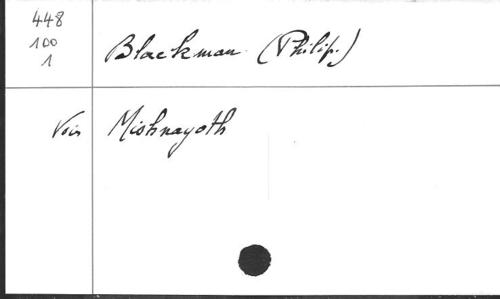 448
100
1
Blackman (Philip.)
Voir Mishnayoth